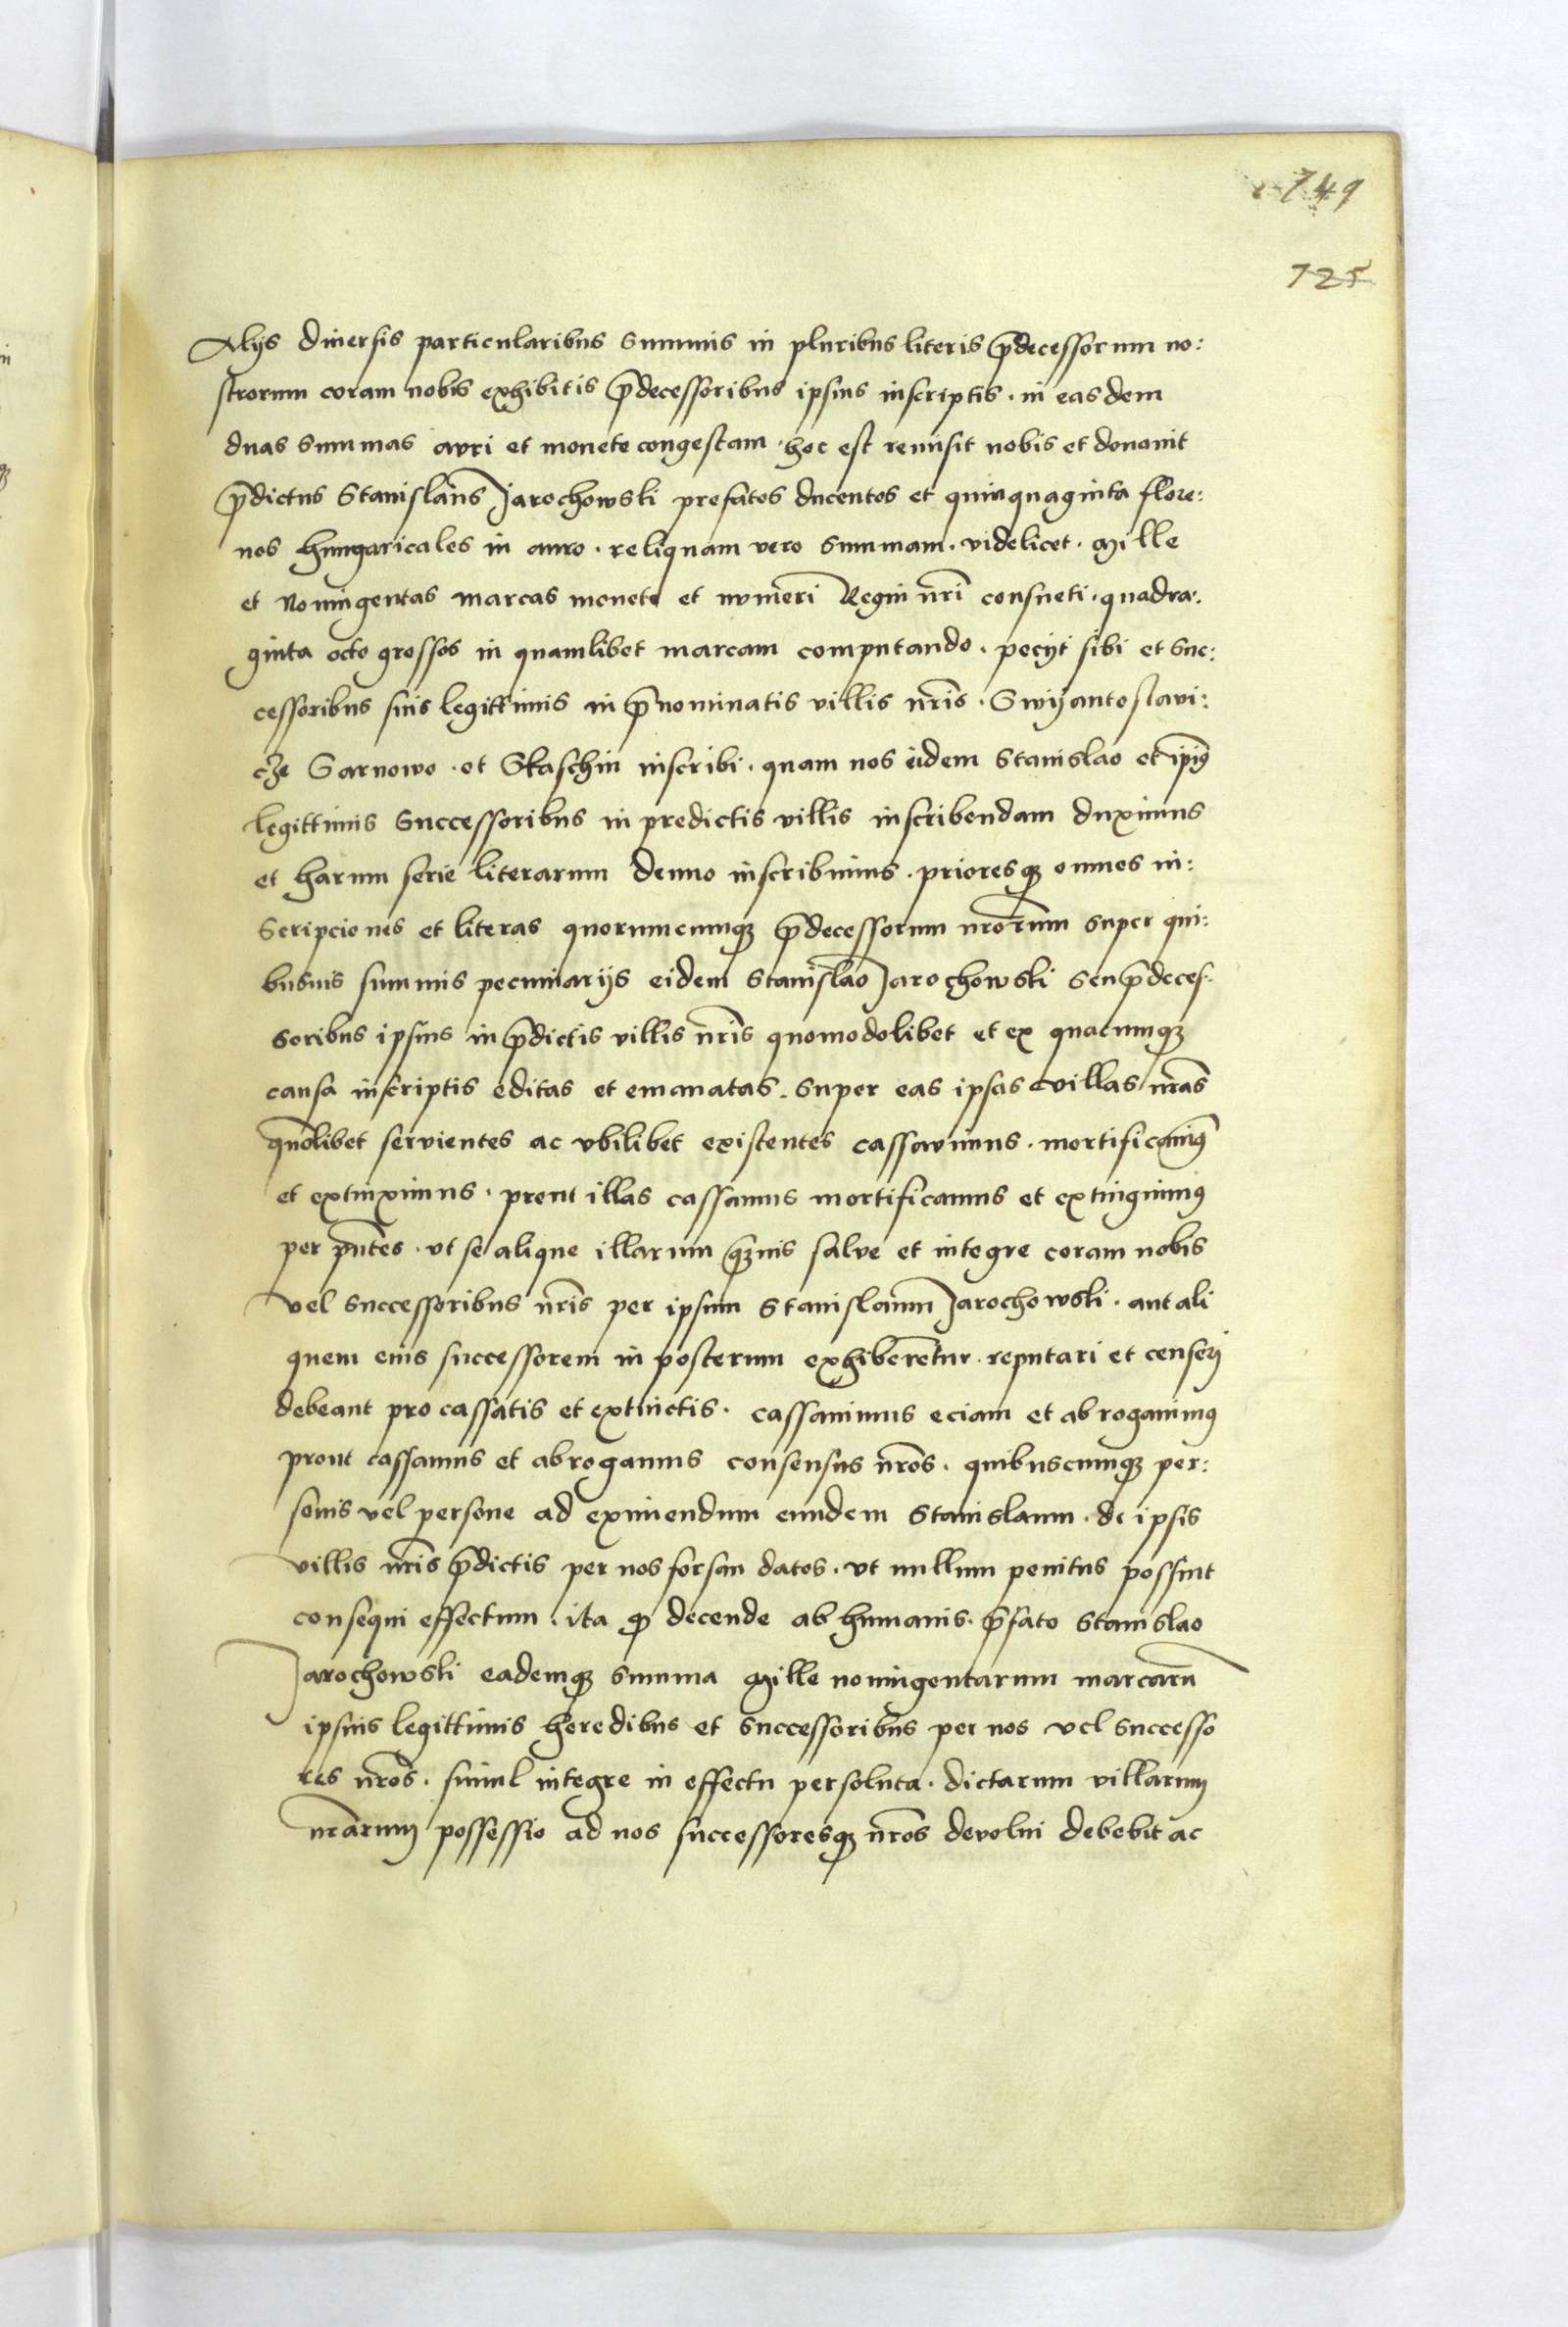 749
725
Alijs diuersis particularibus summis in pluribus literis p̄decessorum no:
strorum coram nobis exhibitis p̄decessoribus ipsius inscriptis. in easdem
duas summas auri et monete congestam. hoc est remisit nobis et donauit
p̄dictus Stanislaus Jarochowski prefatos ducentos et quinquaginta flore:
nos hungaricales in auro. reliquam vero summam. videlicet. Mille
et Noningentas marcas monete et numeri Regni nr̄i consueti. quadra:
ginta octo grossos in quamlibet marcam computando. peciit sibi et suc:
cessoribus suis legittimis in p̄nominatis villis nr̄is. Swijantoslavi:
cze Sarnowo. et Skaschin inscribi. quam nos eidem Stanislao et ipiꝰ
legittimis successoribus in predictis villis inscribendam duximus
et harum serie literarum denuo inscribimus. prioresqꝫ omnes in:
scripciones et literas quorumcumqꝫ p̄decessorum nr̄orum super qui:
busuis summis pecuniarijs eidem Stanislao Jarochowski seu p̄deces:
soribus ipsius in p̄dictis villis nr̄is quomodolibet et ex quacumqꝫ
causa inscriptis editas et emanatas. super eas ipsas villas nr̄as
quōlibet servientes ac vbilibet existentes cassavimus. mortificauimꝰ
et extinximus. prout illas cassamus mortificamus et extinguimꝰ
per pn̄tes. vt se alique illarum qꝫuis salve et integre coram nobis
vel successoribus nr̄is per ipsum Stanislaum Jarochowski. aut ali
quem eius successorem in posterum exhiberentur. reputari et censeri
debeant pro cassatis et extinctis. cassauimus eciam et abrogauimꝰ
prout cassamus et abrogamus consensus nr̄os. quibuscumqꝫ per:
sonis vel persone ad eximendum eundem Stanislaum. de ipsis
villis nr̄is p̄dictis per nos forsan datos. vt nullum penitus possint
consequi effectum. ita ꝙ decende ab humanis. p̄fato Stanislao
Jarochowski eademqꝫ summa Mille noningentarum marcarū
ipsius legittimis heredibus et successoribus per nos vel successo
res nr̄os. simul integre in effectu persoluta. dictarum villarum
nr̄arum possessio ad nos successoresqꝫ nr̄os devolui debebit ac